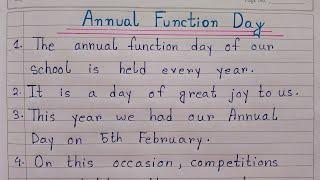 Annual Function Day
1. The annual function day of our
school is held every year.
2. It is a day of great joy to us.
3. This year we had our Annual
Day on 5th February.
4. On this occasion, competitions